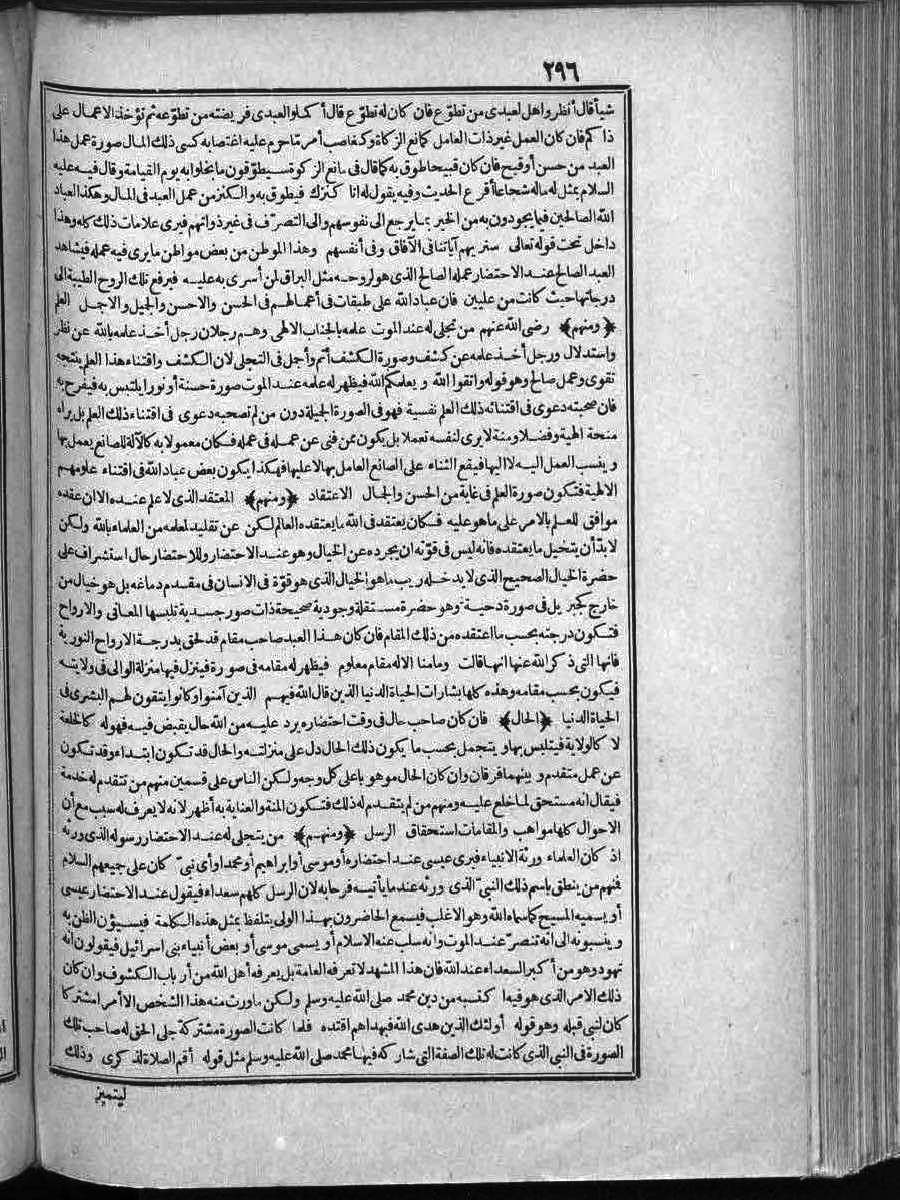 ٢٩٦
شيأ قال أنظروا هل لعبدى من تطوّع فان كان له تطوّع قال أكملوا لعبدى فريضته من تطوّعه ثم تؤخذ الاعمال على
ذاكم فان كان العمل غير ذات العامل كمانع الزكاة وكغاصب أمر مّا حرم عليه اغتصابه كسى ذلك المال صورة عمل هذا
العبد من حسن أو قبيح فان كان قبيحا طوق به كما قال فى مانع الزكوة سيطوّقون ما بخلوا به يوم القيامة وقال فيه عليه
السلام يمثل له ماله شجاعا أقرع الحديث وفيه يقول له انا كنزك فيطوق به والكنز من عمل العبد فى المال وهكذا العباد
الله الصالحين فيما يجودون به من الخير بما يرجع الى نفوسهم والى التصرّف فى غير ذواتهم فيرى علامات ذلك كله وهذا
داخل تحت قوله تعالى سنريهم آياتنا فى الآفاق وفى أنفسهم وهذا الموطن من بعض مواطن ما يرى فيه عمله فيشاهد
العبد الصالح عند الاحتضار عمله الصالح الذى هو لروحه مثل البراق لمن أسرى به عليه فيرفع تلك الروح الطيبة الى
درجاتها حيث كانت من عليين فان عباد الله على طبقات فى أعمالهم فى الحسن والاحسن والجميل والاجمل العلم
﴿ومنهم﴾ رضى الله عنهم من تجلى له عند الموت علمه بالجناب الالهى وهم رجلان رجل أخذ علمه بالله عن نظر
واستدلال ورجل أخذ علمه عن كشف وصورة الكشف أتم وأجل فى التجلى لان الكشف واقتناء هذا العلم ينتجه
تقوى وعمل صالح وهو قوله واتقوا الله ويعلمكم الله فيظهر له علمه عند الموت صورة حسنة أو نورا يلتبس به فيفرح به
فان صحبته دعوى فى اقتنائه ذلك العلم نفسية فهو فى الصورة الجميلة دون من لم تصحبه دعوى فى اقتناء ذلك العلم بل يراه
منحة الهية وفضلا ومنة لا يرى لنفسه تعملا بل يكون ممن فنى عن عمله فى عمله فكان معمولا به كالآلة للصانع يعمل بها
وينسب العمل اليه لا اليها فيقع الثناء على الصانع العامل بها لا عليها فهكذا يكون بعض عباد الله فى اقتناء علومهم
الالهية فتكون صورة العلم فى غاية من الحسن والجمال الاعتقاد ﴿ومنهم﴾ المعتقد الذى لا علم عنده الا ان عقده
موافق للعلم بالامر على ما هو عليه فكان يعتقد فى الله ما يعتقده العالم لكن عن تقليد لمعلمه من العلماء بالله ولكن
لا بدّ أن يتخيل ما يعتقده فانه ليس فى قوّته ان يجرده عن الخيال وهو عند الاحتضار وللاحتضار حال استشراف على
حضرة الخيال الصحيح الذى لا يدخله ريب ما هو الخيال الذى هو قوّة فى الانسان فى مقدم دماغه بل هو خيال من
خارج كجبريل فى صورة دحية وهو حضرة مستقلة وجودية صحيحة ذات صور جسدية تلبسها المعانى والارواح
فتكون درجته بحسب ما اعتقده من ذلك المقام فان كان هذا العبد صاحب مقام قد لحق بدرجة الارواح النورية
فانها التى ذكر الله عنها انها قالت وما منا الا له مقام معلوم فيظهر له مقامه فى صورة فينزل فيها منزلة الوالى فى ولايته
فيكون بحسب مقامه وهذه كلها بشارات الحياة الدنيا الذين قال الله فيهم الذين آمنوا وكانوا يتقون لهم البشرى فى
الحياة الدنيا ﴿الحال﴾ فان كان صاحب حال فى وقت احتضاره يرد عليه من الله حال يقبض فيه فهو له كالخلعة
لا كالولاية فيتلبس بها ويتجمل بحسب ما يكون ذلك الحال دل على منزلته والحال قد تكون ابتداء وقد تكون
عن عمل متقدم وبينهما فرقان وان كان الحال موهوبا على كل وجه ولكن الناس على قسمين منهم من تتقدم له خدمة
فيقال انه مستحق لما خلع عليه ومنهم من لم يتقدم له ذلك فتكون المنة والعناية به أظهر لانه لا يعرف له سبب مع أن
الاحوال كلها مواهب والمقامات استحقاق الرسل ﴿ومنهم﴾ من يتجلى له عند الاحتضار رسوله الذى ورثه
اذ كان العلماء ورثة الانبياء فيرى عيسى عند احتضاره أو موسى أو ابراهيم أو محمدا وأى نبىّ كان على جميعهم السلام
فمنهم من ينطق باسم ذلك النبىّ الذى ورثه عند ما يأتيه فرحا به لان الرسل كلهم سعداء فيقول عند الاحتضار عيسى
أو يسميه المسيح كما سماه الله وهو الاغلب فيسمع الحاضرون بهذا الولى يتلفظ بمثل هذه الكلمة فيسيؤن الظن به
وينسبونه الى انه تنصر عند الموت وانه سلب عنه الاسلام أو يسمى موسى أو بعض أنبياء بنى اسرائيل فيقولون انه
تهود وهو من أكبر السعداء عند الله فان هذا المشهد لا تعرفه العامة بل يعرفه أهل الله من أرباب الكشوف وان كان
ذلك الامر الذى هو فيه اكتسبه من دين محمد صلى الله عليه وسلم ولكن ما ورث منه هذا الشخص الا أمرا مشتركا
كان لنبى قبله وهو قوله أولئك الذين هدى الله فبهداهم اقتده فلما كانت الصورة مشتركة جلى الحق له صاحب تلك
الصورة فى النبى الذى كانت له تلك الصفة التى شاركه فيها محمد صلى الله عليه وسلم مثل قوله أقم الصلاة لذكرى وذلك
ليتميز